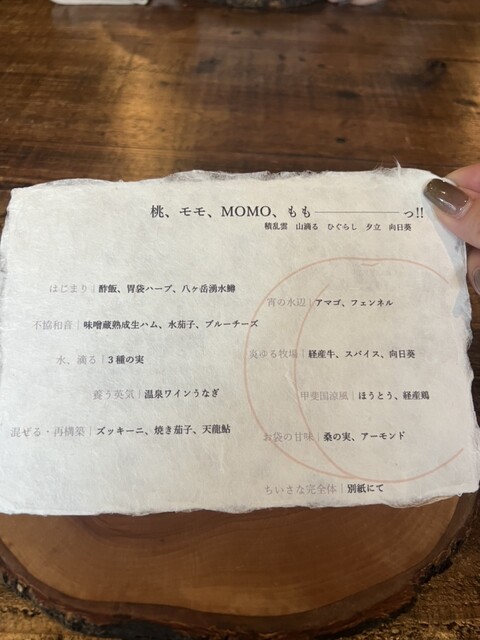 桃、モモ、MOMO、もも————っ!!
積乱雲 山滴る ひぐらし 夕立 向日葵
はじまり｜酢飯、胃袋ハーブ、八ヶ岳湧水鱒
不協和音｜味噌蔵熟成生ハム、水茄子、ブルーチーズ
水、滴る｜3種の実
養う英気｜温泉ワインうなぎ
混ぜる・再構築｜ズッキーニ、焼き茄子、天龍鮎
宵の水辺｜アマゴ、フェンネル
炎ゆる牧場｜経産牛、スパイス、向日葵
甲斐国涼風｜ほうとう、経産鶏
お袋の甘味｜桑の実、アーモンド
ちいさな完全体｜別紙にて